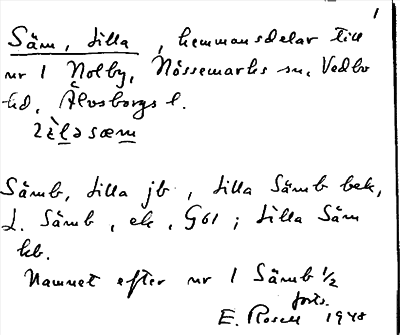 1
Säm, Lilla, hemmansdelar till
nr 1 Nolby, Nössemarks sn, Vedbo
hd, Älvsborgs l.
Sämb, Lilla jb, Lilla Sämb bek,
L. Sämb, ek, G61; Lilla Säm
kb.
Namnet efter nr 1 Sämb 1/2
forts.
E. Rosell 1948